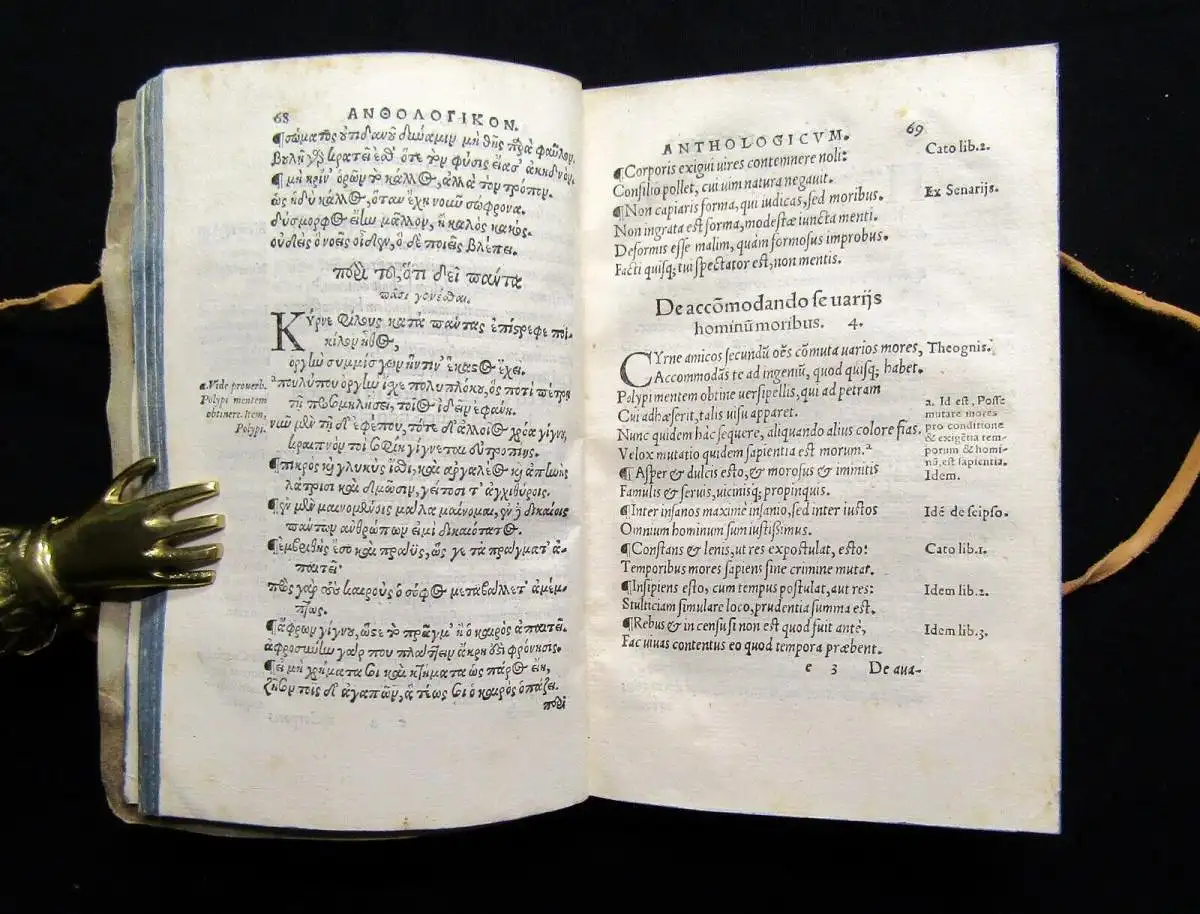 68 ΑΝΘΟΛΟΓΙΚΟΝ.
¶σώματος οὐτιδανοῦ δύναμιν μὴ θῇς παρὰ φαῦλον,
βουλῇ γὰρ κρατεῖ
¶μὴ κρῖν' ὁρῶν τὸ κάλλος, ἀλλὰ τὸν τρόπον.
ὡς ἡδὺ κάλλος, ὅταν ἔχῃ νοῦν σώφρονα.
δύσμορφος εἴην μᾶλλον, ἢ καλὸς κακός.
οὐδεὶς ὃ νοεῖς οἶδεν, ὃ δὲ ποιεῖς βλέπει.
περὶ τοῦ, ὅτι δεῖ πάντα
πᾶσι γενέσθαι.
ΚΎρνε φίλους κατὰ πάντας ἐπίστρεφε ποι-
κίλον ἦθος,
ὀργὴν συμμίσγων ἥντιν' ἕκαστος ἔχει.
a. Vide proverb.
Polypi mentem
obtinere. Item,
Polypi.
ᵃπουλύπου ὀργὴν ἴσχε πολυπλόκου, ὃς ποτὶ πέτρῃ
τῇ προσομιλήσει, τοῖος ἰδεῖν ἐφάνη.
νῦν μὲν τῇ δ' ἐφέπου, τότε δ' ἀλλοῖος χρόα γίγνου,
κραιπνόν τοι σοφίη γίγνεται εὐτροπίης.
¶πικρὸς καὶ γλυκὺς ἴσθι, καὶ ἀργαλέος καὶ ἀπηνὴς
λάτρισι καὶ δμωσὶν, γείτοσί τ' ἀγχιθύροις.
¶ἐν μὲν μαινομένοις μάλα μαίνομαι, ἐν δὲ δικαίοις
πάντων ἀνθρώπων εἰμὶ δικαιότατος.
¶ἐμβριθὴς ἔσο καὶ πραΰς, ὥς γε τὰ πράγματ' ἀ-
παιτεῖ·
πρὸς γὰρ τοὺς καιροὺς ὁ σοφὸς μεταβάλλετ' ἀμέμ-
πτως.
¶ἄφρων γίγνου, ὥστε τὸ πρᾶγμ' ἢ ὁ καιρὸς ἀπαιτεῖ.
ἀφροσύνην γάρ που πλάττειν ἄκρη ἐστὶ φρόνησις.
¶εἰ μὴ χρήματά σοι καὶ κτήματα ὡς πάρος εἴη,
ζῆθι ἐν τοῖς δ' ἀγαπῶν, ἅ τέως σοι ὁ καιρὸς ὀπάζει.
περὶ
ANTHOLOGICVM. 69
¶Corporis exigui uires contemnere noli: Cato lib.2.
Consilio pollet, cui uim natura negauit.
¶Non capiaris forma, qui iudicas, sed moribus. Ex Senarijs.
Non ingrata est forma, modestæ iuncta menti.
Deformis esse malim, quàm formosus improbus.
Facti quisq; tui spectator est, non mentis.
De accōmodando se uarijs
hominū moribus. 4.
CYrne amicos secundū oēs cōmuta varios mores, Theognis.
Accommodās te ad ingeniū, quod quisq; habet.
Polypi mentem obtine uersipellis, qui ad petram
Cui adhæserit, talis uisu apparet.
Nunc quidem hàc sequere, aliquando alius colore fias.
Velox mutatio quidem sapientia est morum.ᵃ
a. Id est, Posse
mutare mores
pro conditione
& exigētia tem-
porum & homi-
nū, est sapientia.
¶Asper & dulcis esto, & morosus & immitis Idem.
Famulis & seruis, uicinisq; propinquis.
¶Inter insanos maxime insanio, sed inter iustos Idē de seipso.
Omnium hominum sum iustissimus.
¶Constans & lenis, ut res expostulat, esto: Cato lib.1.
Temporibus mores sapiens sine crimine mutat.
¶Insipiens esto, cum tempus postulat, aut res: Idem lib.2.
Stulticiam simulare loco, prudentia summa est.
¶Rebus & in censu si non est quod fuit antè, Idem lib.3.
Fac uiuas contentus eo quod tempora præbent.
e 3 De aua-